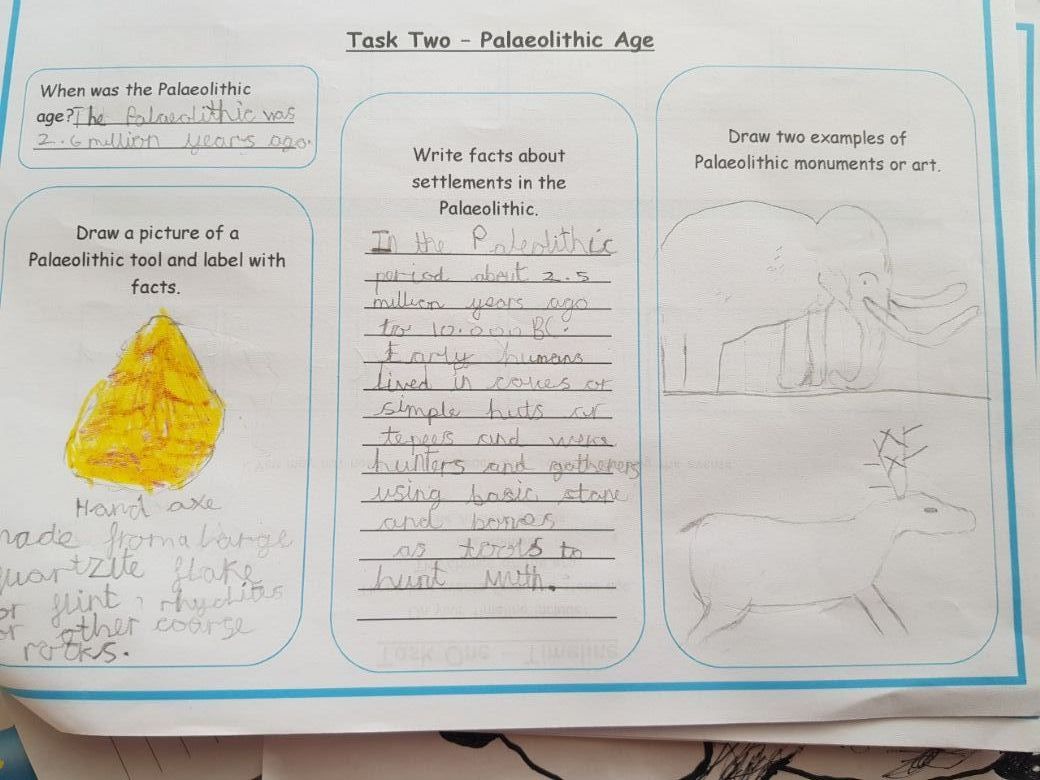 Task Two - Palaeolithic Age
When was the Palaeolithic
age? The Palaeolithic was
2.6 million years ago.
Draw a picture of a
Palaeolithic tool and label with
facts.
Hand axe
made from a large
quartzite flake
or flint, rhyolites
or other coarse
rocks.
Write facts about
settlements in the
Palaeolithic.
In the Paleolithic
period about 2.5
million years ago
to 10.000 BC.
Early humans
lived in caves or
simple huts or
tepees and were
hunters and gatherers
using basic stone
and bones
as tools to
hunt with.
Draw two examples of
Palaeolithic monuments or art.
Task One - Timeline